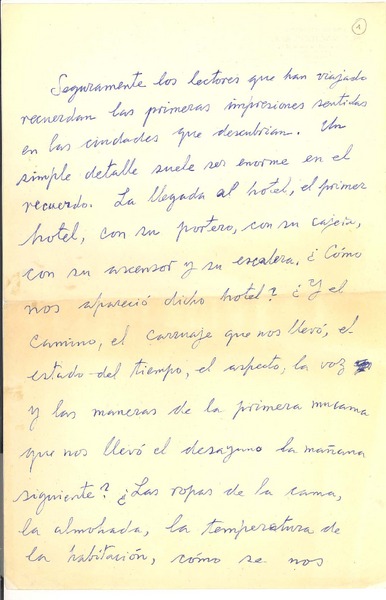 1
Seguramente los lectores que han viajado
recuerdan las primeras impresiones sentidas
en las ciudades que descubrian. Un
simple detalle suele ser enorme en el
recuerdo. La llegada al hotel, el primer
hotel, con su portero, con su cajera,
con su ascensor y su escalera, ¿Cómo
nos apareció dicho hotel? ¿Y el
camino, el carruaje que nos llevó, el
estado del tiempo, el aspecto, la voz
y las maneras de la primera mucama
que nos llevó el desayuno la mañana
siguiente? ¿Las ropas de la cama,
la almohada, la temperatura de
la habitación, cómo se nos